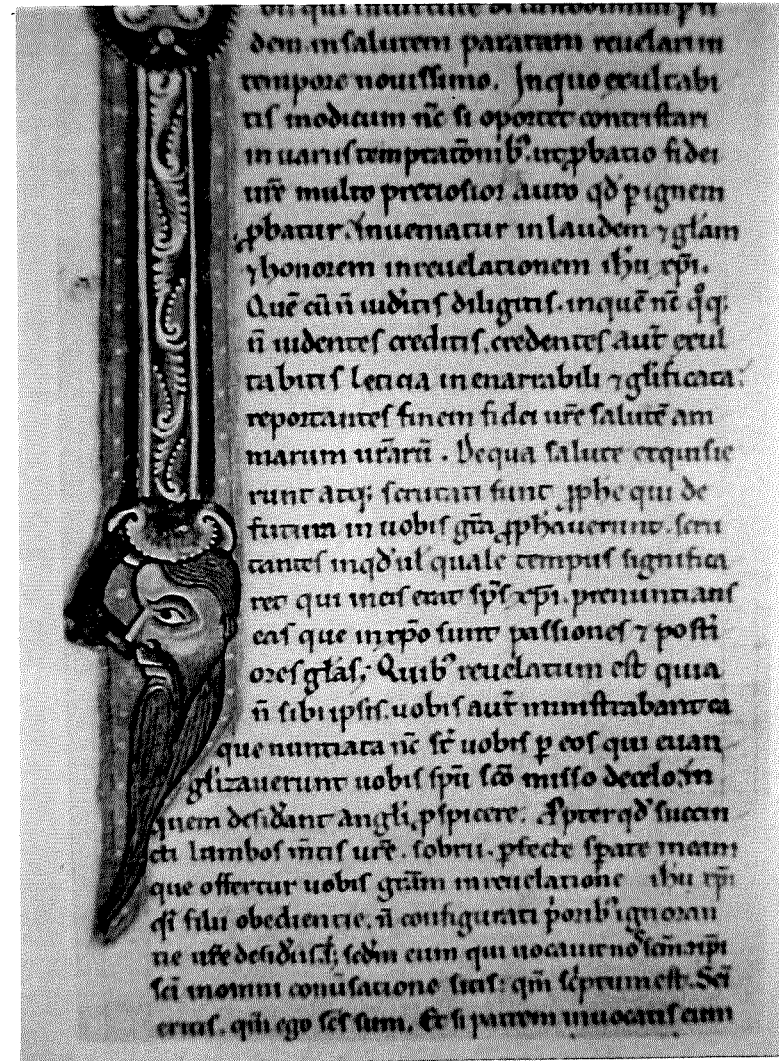 dem. in salutem paratam reuelari in
tempore nouissimo. In quo exultabi
tis modicum nc̄ si oportet contristari
in uariis temptatōnib; ut ꝓbatio fidei
ur̄e multo preciosior auro qd̄ ꝑ ignem
ꝓbatur. inueniatur in laudem ⁊ gl̄am
⁊ honorem in reuelationem ih̄u xp̄i.
Quē cū n̄ uidītis diligitis. in quē nc̄ qͦq;
n̄ uidentes creditis. credentes aut̄ exul
tabitis leticia inenarrabili ⁊ gl̄ificata.
reportantes finem fidei ur̄e salutē ani
marum ur̄arū. De qua salute exquisie
runt atq; scrutati sunt ꝓphe qui de
futura in uobis gr̄a ꝓph̄auerunt. scru
tantes in qd̄ ul̄ quale tempus significa
ret qui in eis erat sp̄s xp̄i. prenuntians
eas que in xp̄o sunt passiones ⁊ posti
ores gl̄as. Quib; reuelatum est quia
n̄ sibi ipsis. uobis aut̄ ministrabant ea
que nuntiata nc̄ st̄ uobis ꝑ eos qui euan
gl̄izauerunt uobis sp̄u sc̄o misso de celo. in
quem desid̄ant angl̄i ꝓspicere. Ꝓpter qd̄ succin
cti lumbos m̄tis ur̄e. sobrii. ꝑfecte sperate in eam
que offertur uobis gr̄am in reuelatione ih̄u xp̄i
q̄i filii obedientie. n̄ configurati p̄orib; ignoran
tie ur̄e desid̄iis. s; sc̄dm eum qui uocauit uos sc̄m. ⁊ ip̄i
sc̄i in omni conūsatione sitis: qm̄ sc̄ptum est. Sc̄i
eritis. qm̄ ego sc̄s sum. Et si patrem inuocatis eum